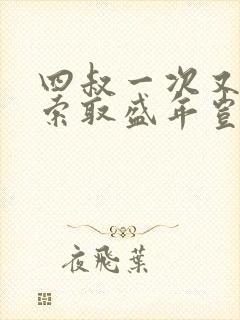 四叔一次又
索取盛年岂
夜飛葉